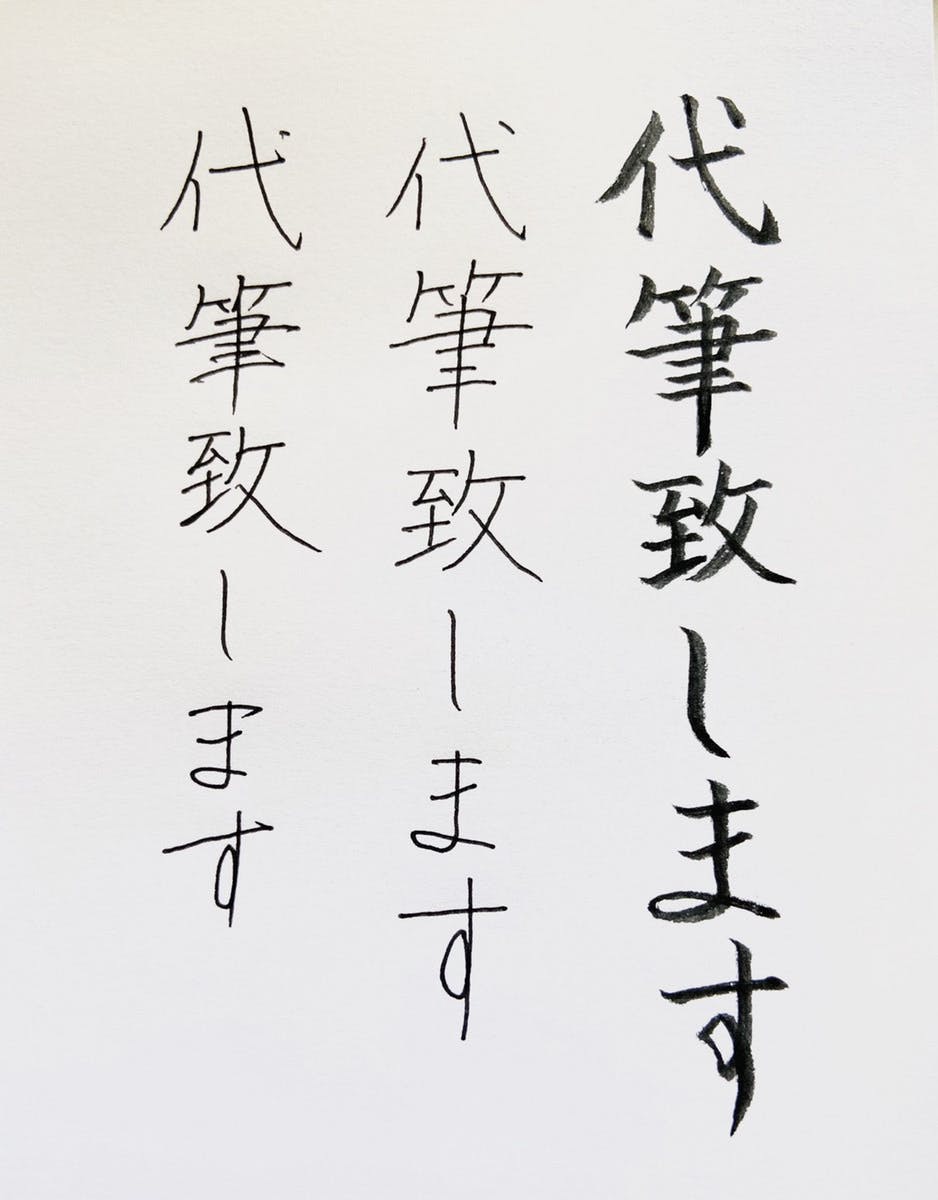 代筆致します
代筆致します
代筆致します